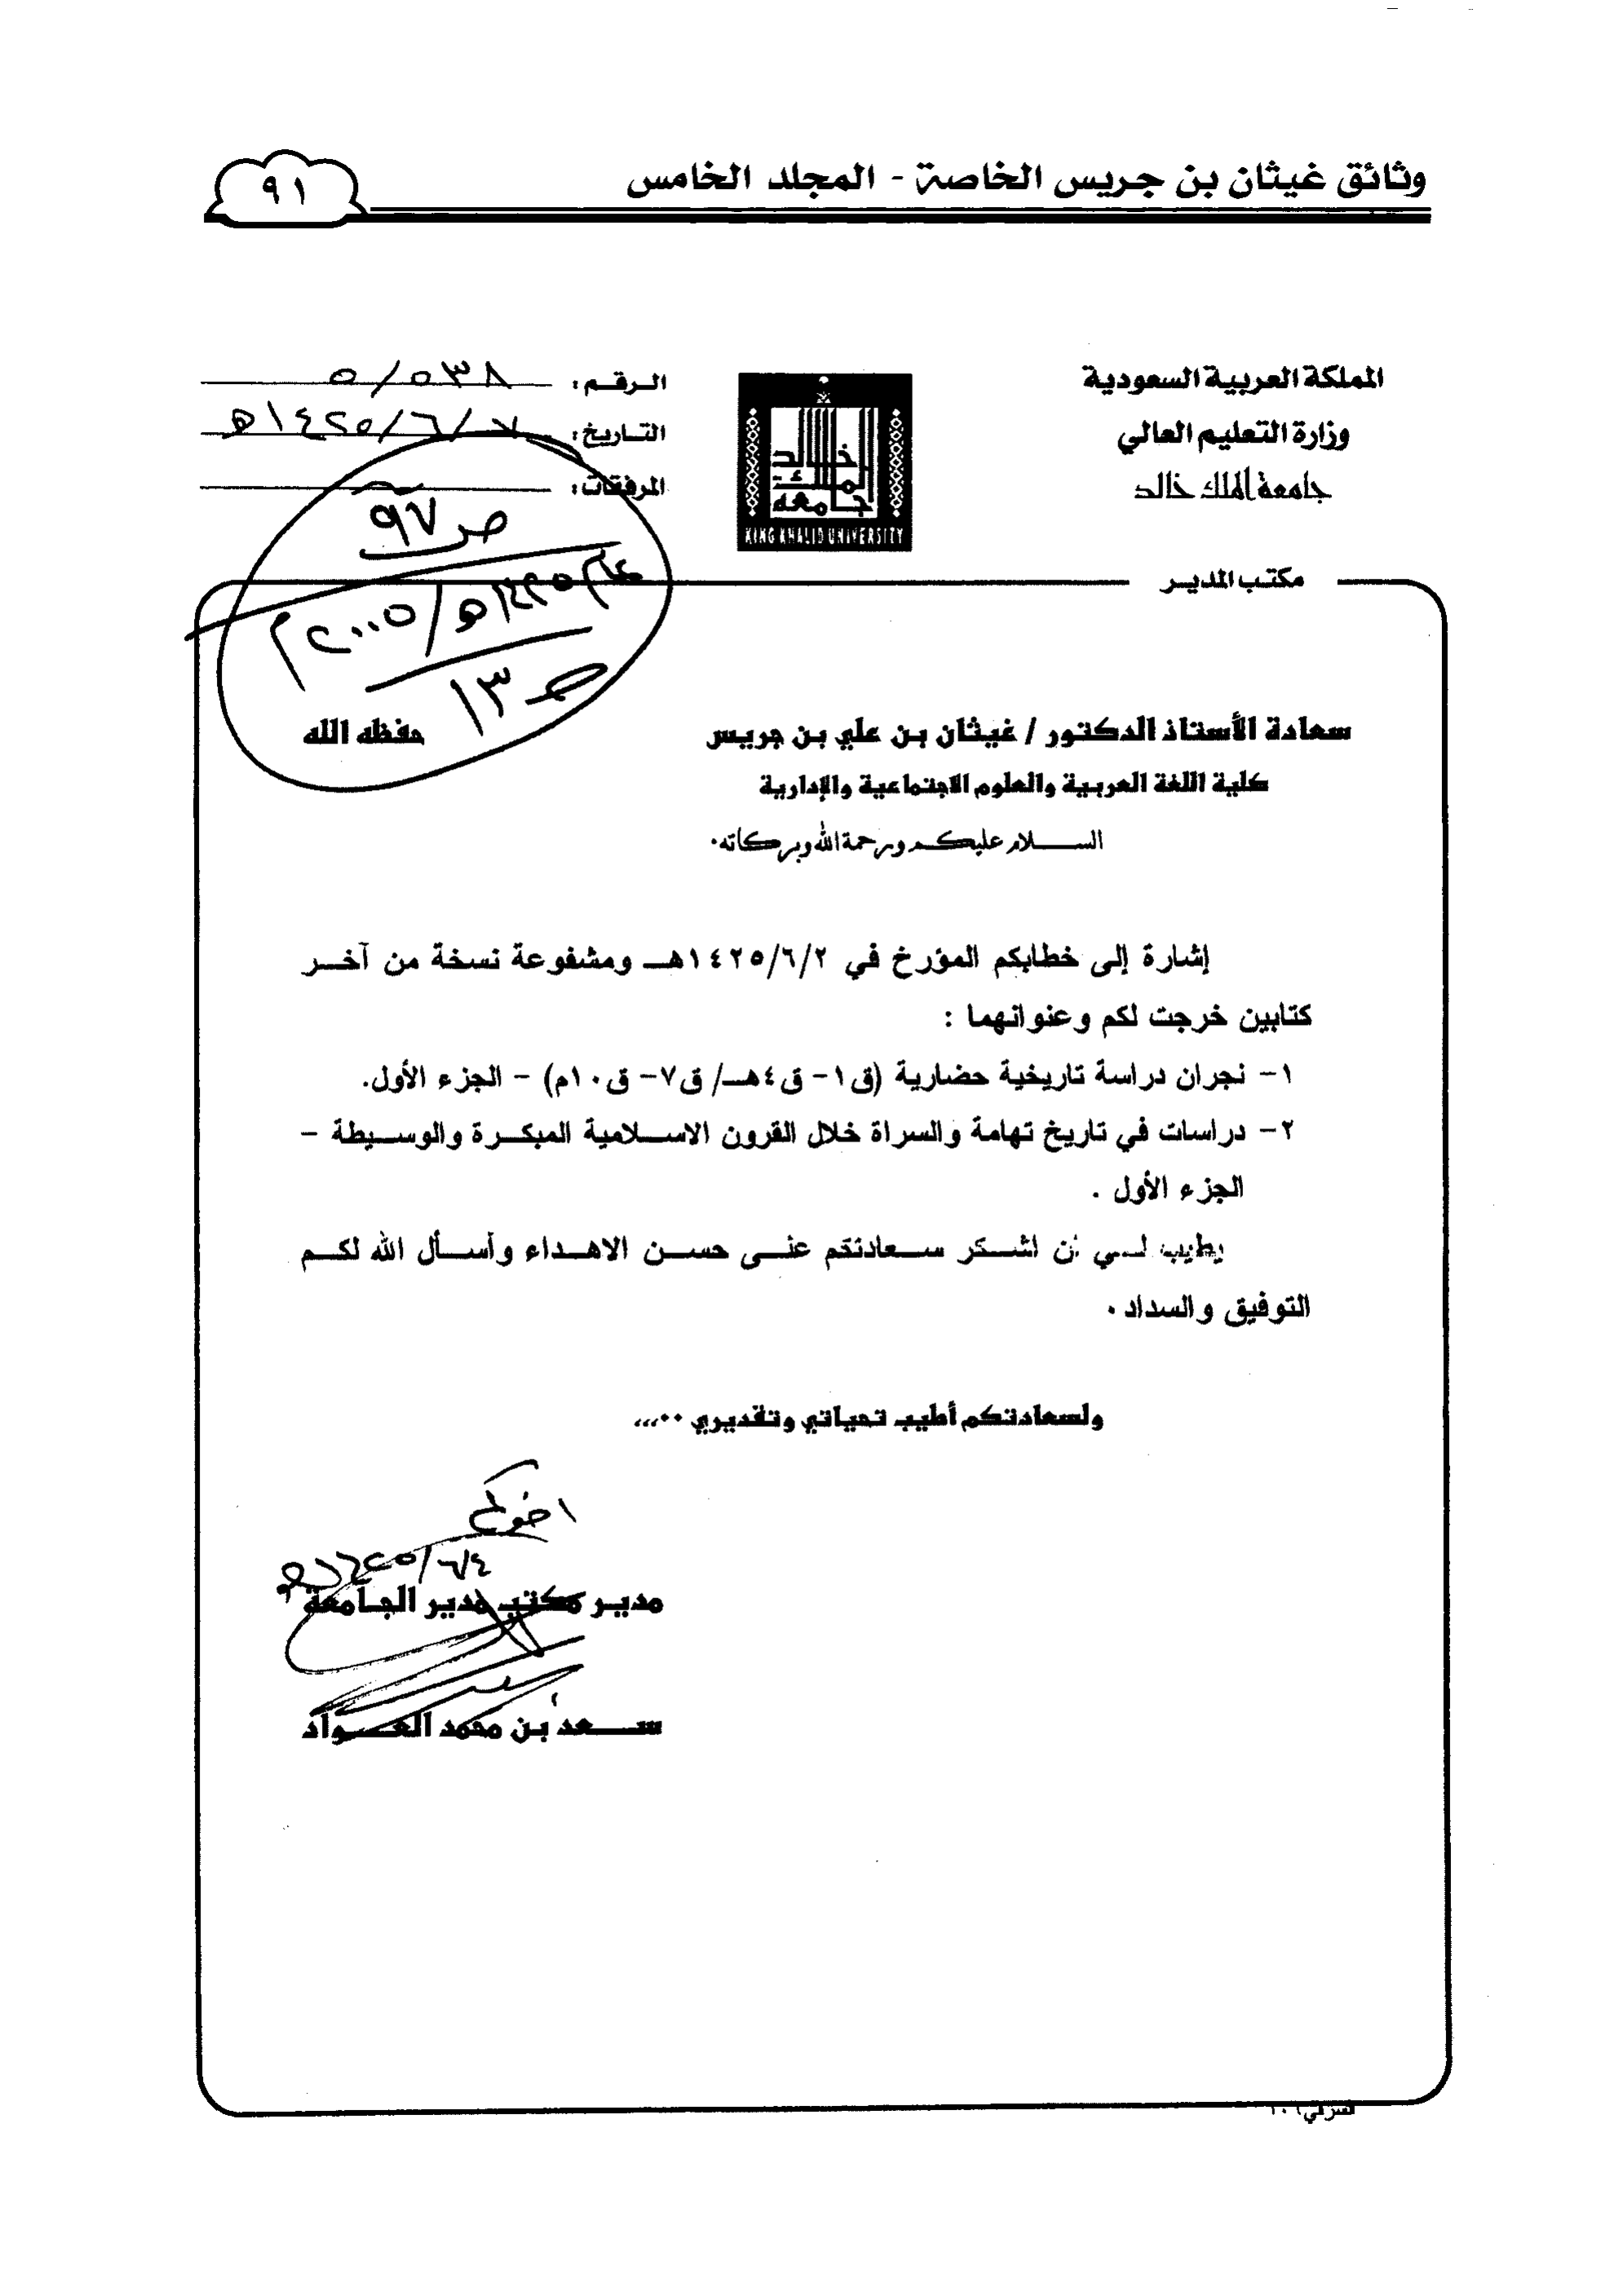 وثائق غيثان بن جريس الخاصة - المجلد الخامس
٩١
المملكة العربية السعودية
وزارة التعليم العالي
جامعة الملك خالد
جامعة الملك خالد
KING KHALID UNIVERSITY
الرقم: ٥/٥٣٨
التاريخ: ٧/٦/١٤٢٥هـ
المرفقات:
ص ٩٧
عام ١٤٢٥هـ/٢٠٠٥م
١٣
مكتب المدير
سعادة الأستاذ الدكتور / غيثان بن علي بن جريس حفظه الله
كلية اللغة العربية والعلوم الاجتماعية والإدارية
السلام عليكم ورحمة الله وبركاته.
إشارة إلى خطابكم المؤرخ في ١٤٢٥/٦/٢هـ ومشفوعة نسخة من آخر
كتابين خرجت لكم وعنوانهما :
١- نجران دراسة تاريخية حضارية (ق١- ق٤هـ/ ق٧- ق١٠م) - الجزء الأول.
٢- دراسات في تاريخ تهامة والسراة خلال القرون الاسلامية المبكرة والوسيطة -
الجزء الأول .
يطيب لي أن اشكر سعادتكم على حسن الاهداء وأسأل الله لكم
التوفيق والسداد .
ولسعادتكم أطيب تحياتي وتقديري ..،،،
اخوكم
١٤٢٥/٦/٤هـ
مدير مكتب مدير الجامعة
سعد بن محمد العواد